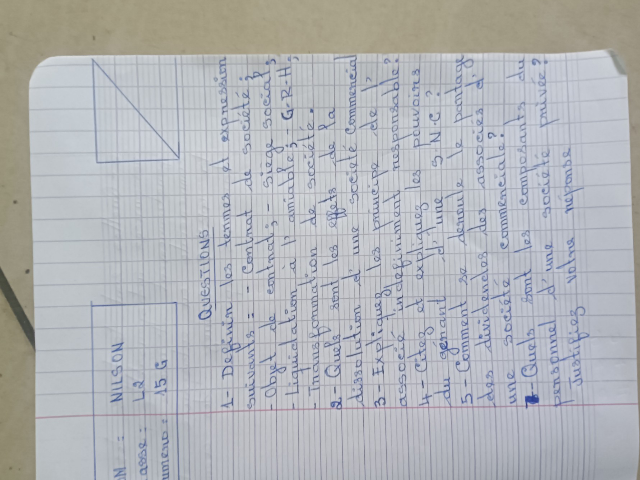 ON : NILSON
asse : L2
uméro : 15 G
QUESTIONS
1- Définir les termes et expression
suivants = - Contrat de société ;
- Objet de contrat ; - Siège social ;
- Liquidation à l'amiable ; - G.R.H ;
- Transformation de société.
2- Quels sont les effets de la
dissolution d'une société Commercial
3- Expliquez les principe de l'
associé indéfiniment responsable ?
4- Citez et expliquez les pouvoirs
du gérant d'une S.N.C ?
5- Comment se déroule le partage
des dividendes des associés d'
une société commerciale ?
- Quels sont les composants du
personnel d'une société privée ?
Justifiez votre réponse